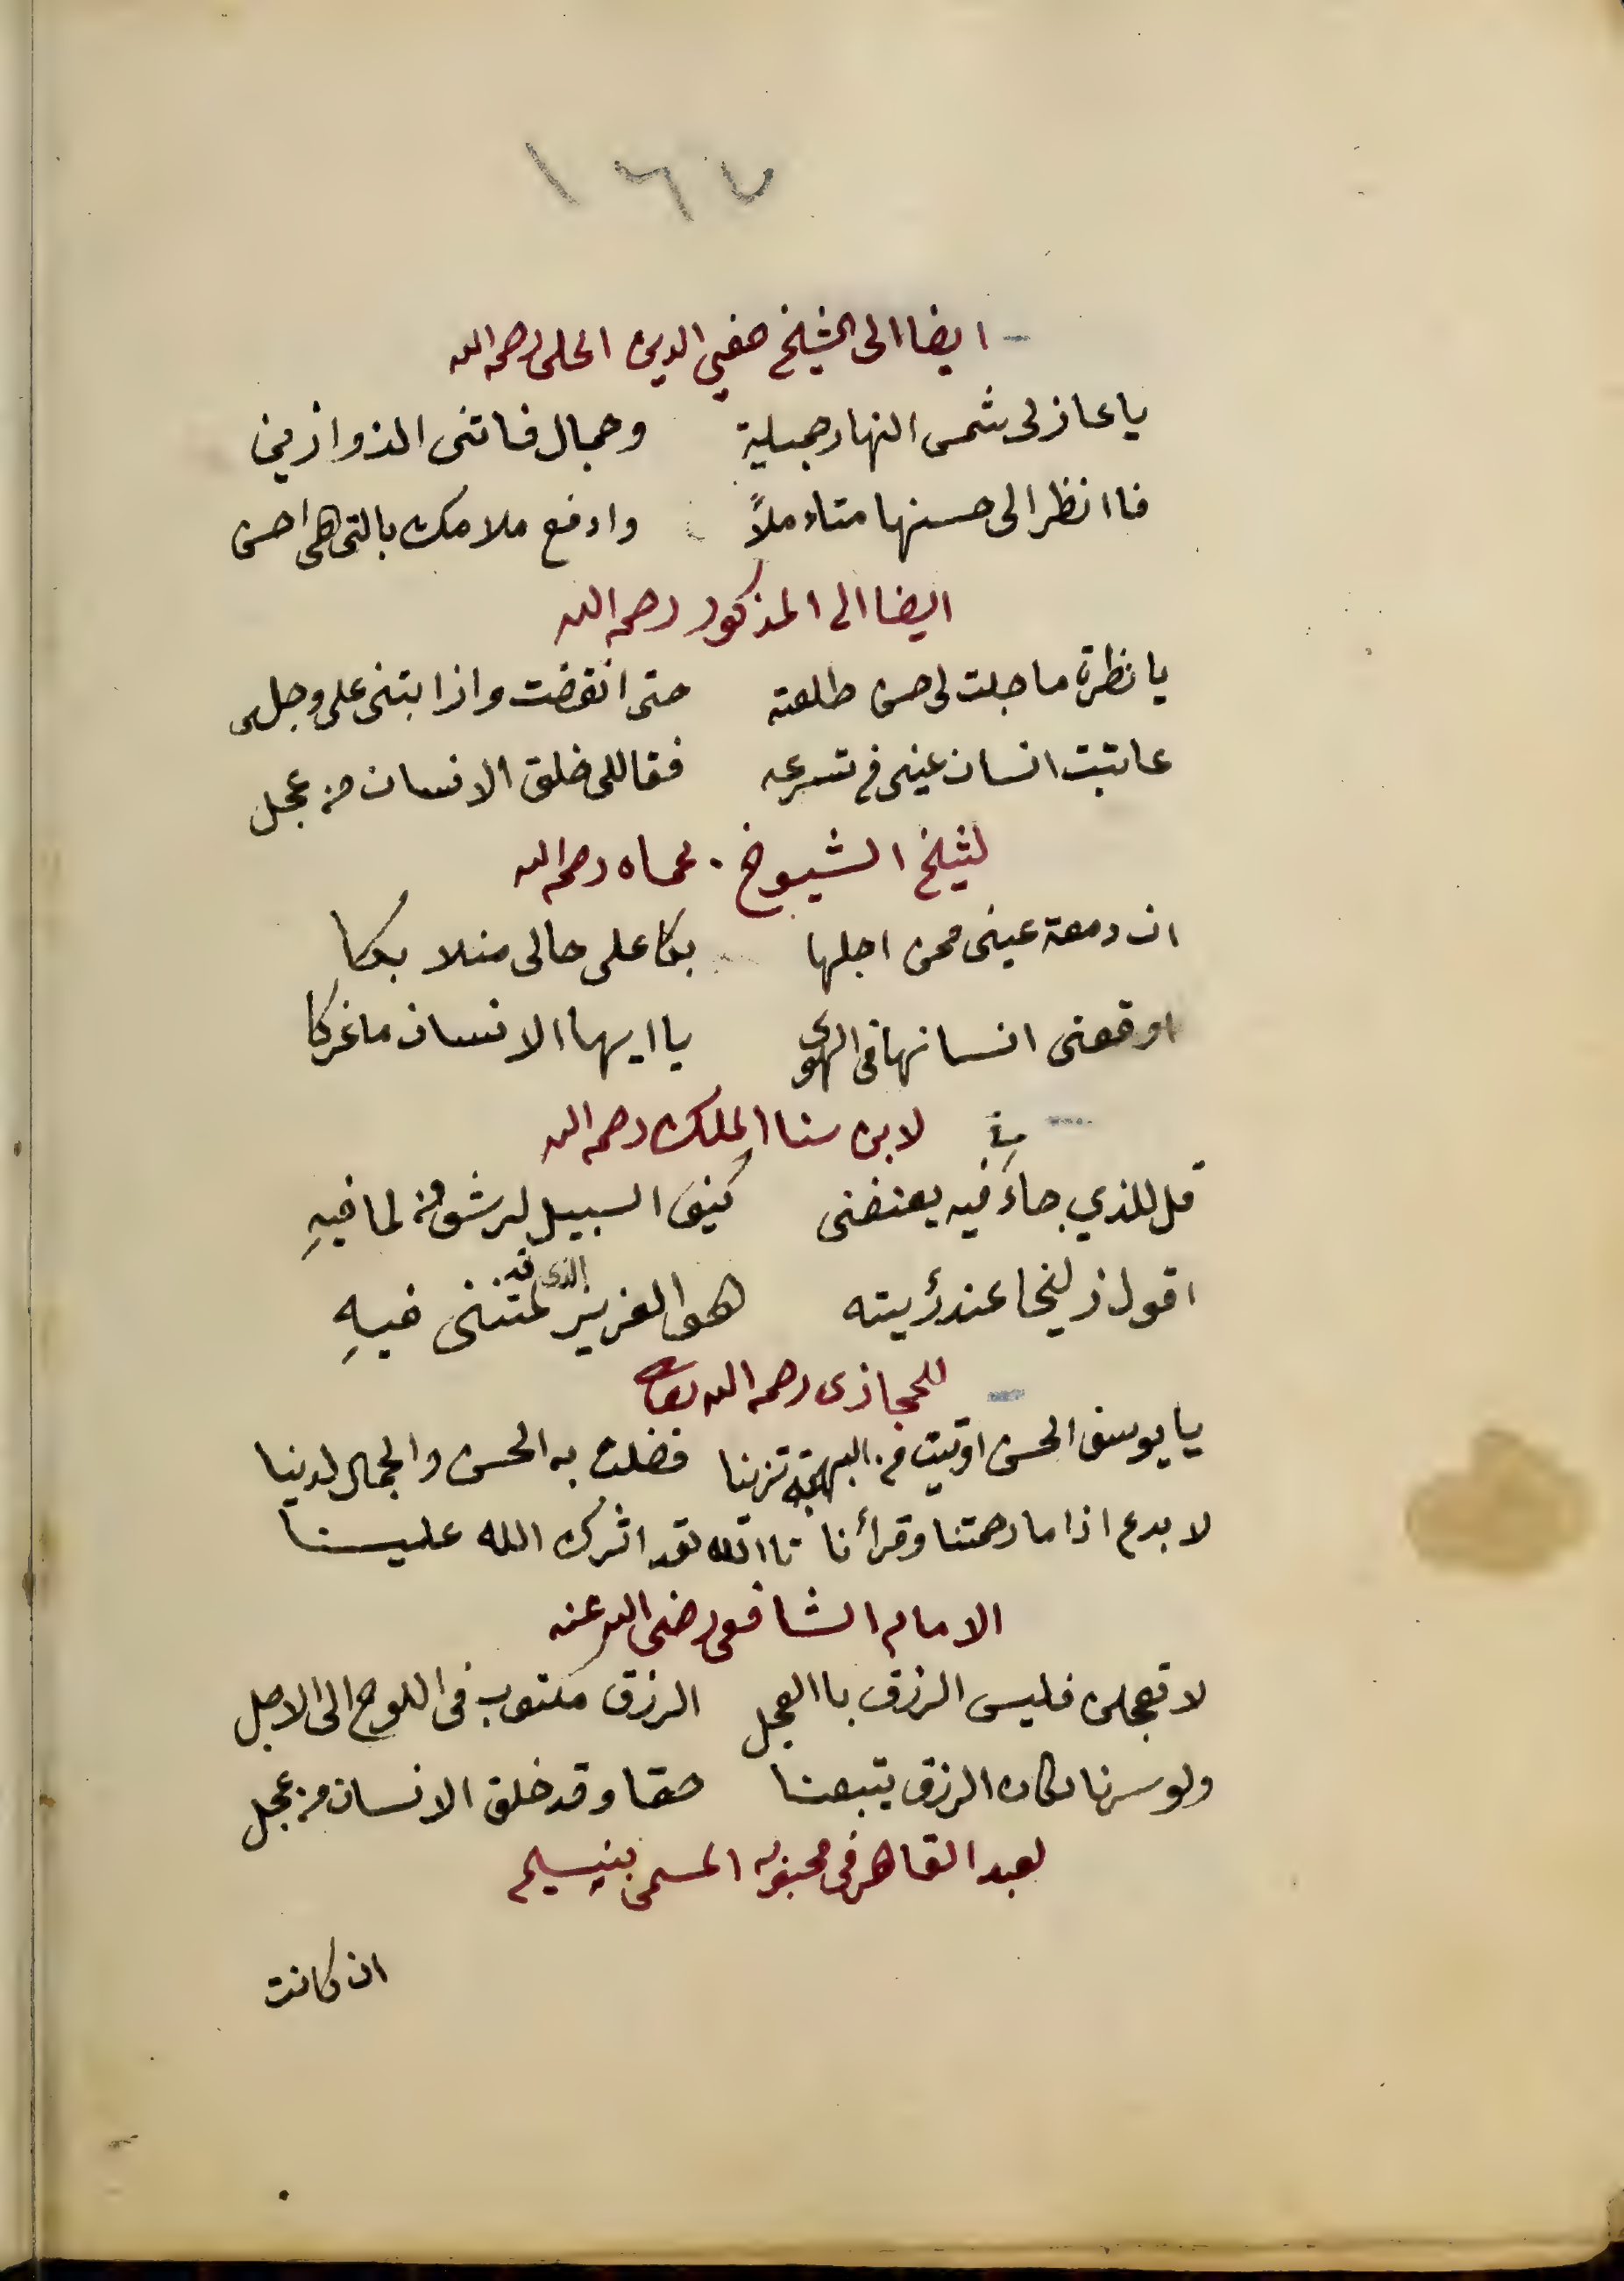 ١٦٧
ايضا الى الشيخ صفي الدين الحلى رحمه الله
يا عاذلى شمس النهار جميلة وجمال فاتنى الذ وازين
فاانظر الى حسنها متاءملاً وادفع ملامك بالتى هى احسن
ايضا الى المذكور رحمه الله
يا نظرة ما جلت لى حسن طلعته حتى انقضت واذابتنى على وجلى
عاتبت انسان عينى فى تسرعه فقاللى خلق الانسان من عجل
لشيخ الشيوخ . بحماه رحمه الله
ان دمعة عينى من اجلها بكا على حالى من لا بكا
اوقعنى انسانها فى الهوى يا ايها الانسان ما غركا
لابن سنا الملك رحمه الله
قل للذي جاءَ فيه يعنفنى كيف السبيل لرشف من لما فيهِ
اقول زليخا عند رؤيته هو العزيز الذى قد لمتننى فيهِ
للحجازى رحمه الله تعالى
يا يوسف الحسن اوتيت من البهجة تزينا فضلت به الحسن والجمال لدينا
لا بدع اذا ما رحمتنا وقرأنا تاالله لقد اثرك الله علينا
الامام الشافعى رضى الله عنه
لا تعجلن فليس الرزق باالعجل الرزق مكتوب فى اللوح الى الاجل
ولو سرنا لكان الرزق يتبعنا حقا وقد خلق الانسان من عجل
لعبد القاهر فى محبوبه المسمى بنيسيم
ان كانت